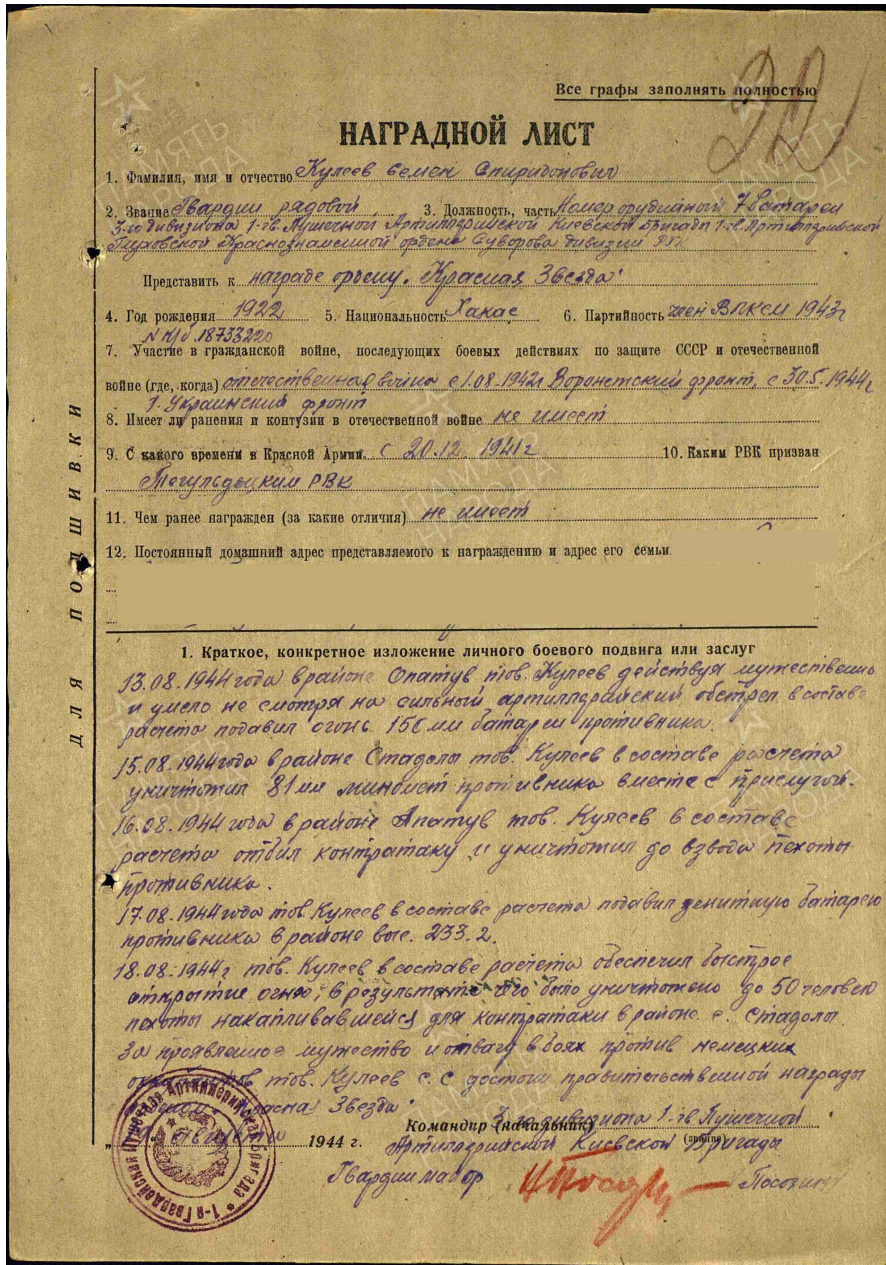 Все графы заполнять полностью
22
НАГРАДНОЙ ЛИСТ
1. Фамилия, имя и отчество Кулеев Семен Спиридонович
2. Звание Гвардии рядовой 3. Должность, часть Номер орудийный 7 батареи
3-го дивизиона 1-гв. Пушечной Артиллерийской Киевской бригады 1-гв. Артиллерийской
Глуховской Краснознаменной ордена Суворова дивизии РГК
Представить к награде ордену "Красная Звезда"
4. Год рождения 1922 5. Национальность Хакас 6. Партийность член ВЛКСМ 1943г
N 18733220
7. Участие в гражданской войне, последующих боевых действиях по защите СССР и отечественной
войне (где, когда) отечественная война с 1.08-1942г Воронежский фронт, с 30.5.1944г
1. Украинский фронт
8. Имеет ли ранения и контузии в отечественной войне не имеет
9. С какого времени в Красной Армии с 20.12.1941г 10. Каким РВК призван
Тегульдецким РВК
11. Чем ранее награжден (за какие отличия) не имеет
12. Постоянный домашний адрес представляемого к награждению и адрес его семьи.
ДЛЯ ПОДШИВКИ
1. Краткое, конкретное изложение личного боевого подвига или заслуг
13.08.1944 года в районе Опатув тов. Кулеев действуя мужественно
и умело не смотря на сильный артиллерийский обстрел в составе
расчета подавил огонь 150 мм батареи противника.
15.08.1944 года в районе Стадолы тов. Кулеев в составе расчета
уничтожил 81 мм миномет противника вместе с прислугой.
16.08.1944 года в районе Апатув тов. Кулеев в составе
расчета отбил контратаку и уничтожил до взвода пехоты
противника.
17.08.1944 года тов. Кулеев в составе расчета подавил зенитную батарею
противника в районе выс. 233.2.
18.08.1944 г тов. Кулеев в составе расчета обеспечил быстрое
открытие огня, в результате чего было уничтожено до 50 человек
пехоты накапливавшейся для контратаки в районе с. Стадолы.
За проявленное мужество и отвагу в боях против немецких
тов. Кулеев С.С достоин правительственной награды
Звезда"
Командир (начальник) 3-го дивизиона 1-гв Пушечной
1944 г. Артиллерийской Киевской бригады
(звание)
Гвардии майор
Пушечная Артиллерийская бригада * 1-я Гвардейская
ПАМЯТЬ НАРОДА